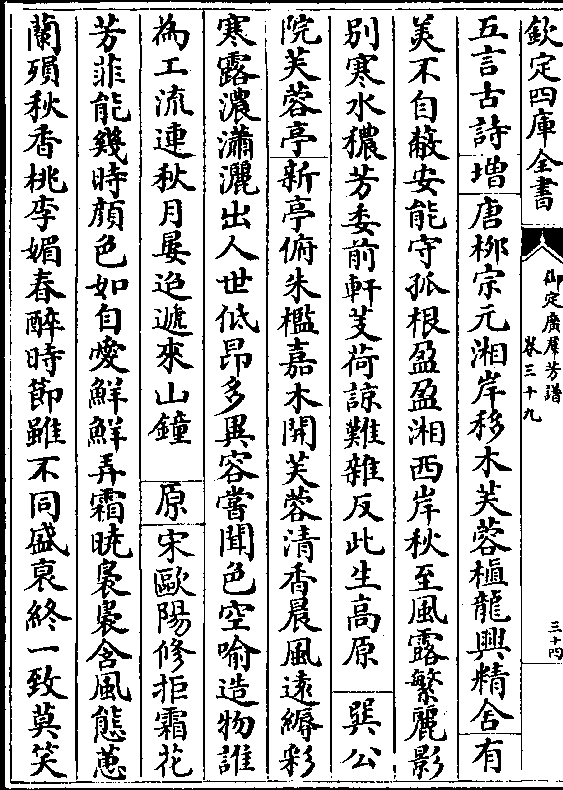 欽定四庫全書
御定廣羣芳譜
卷三十九
三十四
五言古詩增唐柳宗元湘岸移木芙蓉植龍興精舍有
美不自蔽安能守孤根盈盈湘西岸秋至風露繁麗影
別寒水穠芳委前軒芰荷諒難雜反此生高原 巽公
院芙蓉亭新亭俯朱檻嘉木開芙蓉清香晨風遠縟彩
寒露濃瀟灑出人世低昂多異容嘗聞色空喻造物誰
為工流連秋月晏迢遞來山鐘 原宋歐陽修拒霜花
芳菲能幾時顏色如自愛鮮鮮弄霜曉裊裊含風態蕙
蘭殞秋香桃李媚春醉時節雖不同盛衰終一致莫笑